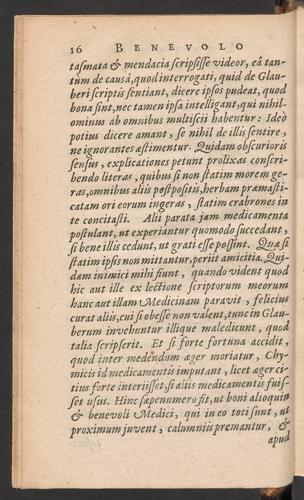 16 BENEVOLO
tasmata & mendacia scripsisse videor, eâ tan-
tùm de causâ, quod interrogati, quid de Glau-
beri scriptis sentiant, dicere ipsos pudeat, quod
bona sint, nec tamen ipsa intelligant, qui nihil-
ominus ab omnibus multiscii habentur: Ideò
potius dicere amant, se nihil de illis sentire,
ne ignorantes æstimentur. Quidam obscurioris
sensus, explicationes petunt prolixas conscri-
bendo literas, quibus si non statim morem ge-
ras, omnibus aliis postpositis, herbam præmasti-
catam ori eorum ingeras, statim crabrones in
te concitasti. Alii parata jam medicamenta
postulant, ut experiantur quomodo succedant,
si bene illis cedunt, ut grati esse possint. Quæ si
statim ipsis non mittantur, periit amicitia. Qui-
dam inimici mihi fiunt, quando vident quod
hic aut ille ex lectione scriptorum meorum
hanc aut illam Medicinam paravit, felicius
curat aliis, cui si obesse non valent, tunc in Glau-
berum invehuntur illique maledicunt, quod
talia scripserit. Et si forte fortuna accidit,
quod inter medendum æger moriatur, Chy-
micis id medicamentis imputant, licet æger ci-
tius forte interiisset, si aliis medicamentis fuis-
set usus. Hinc sæpenumero fit, ut boni alioquin
& benevoli Medici, qui in eo toti sunt, ut
proximum juvent, calumnijs premantur, &
apud